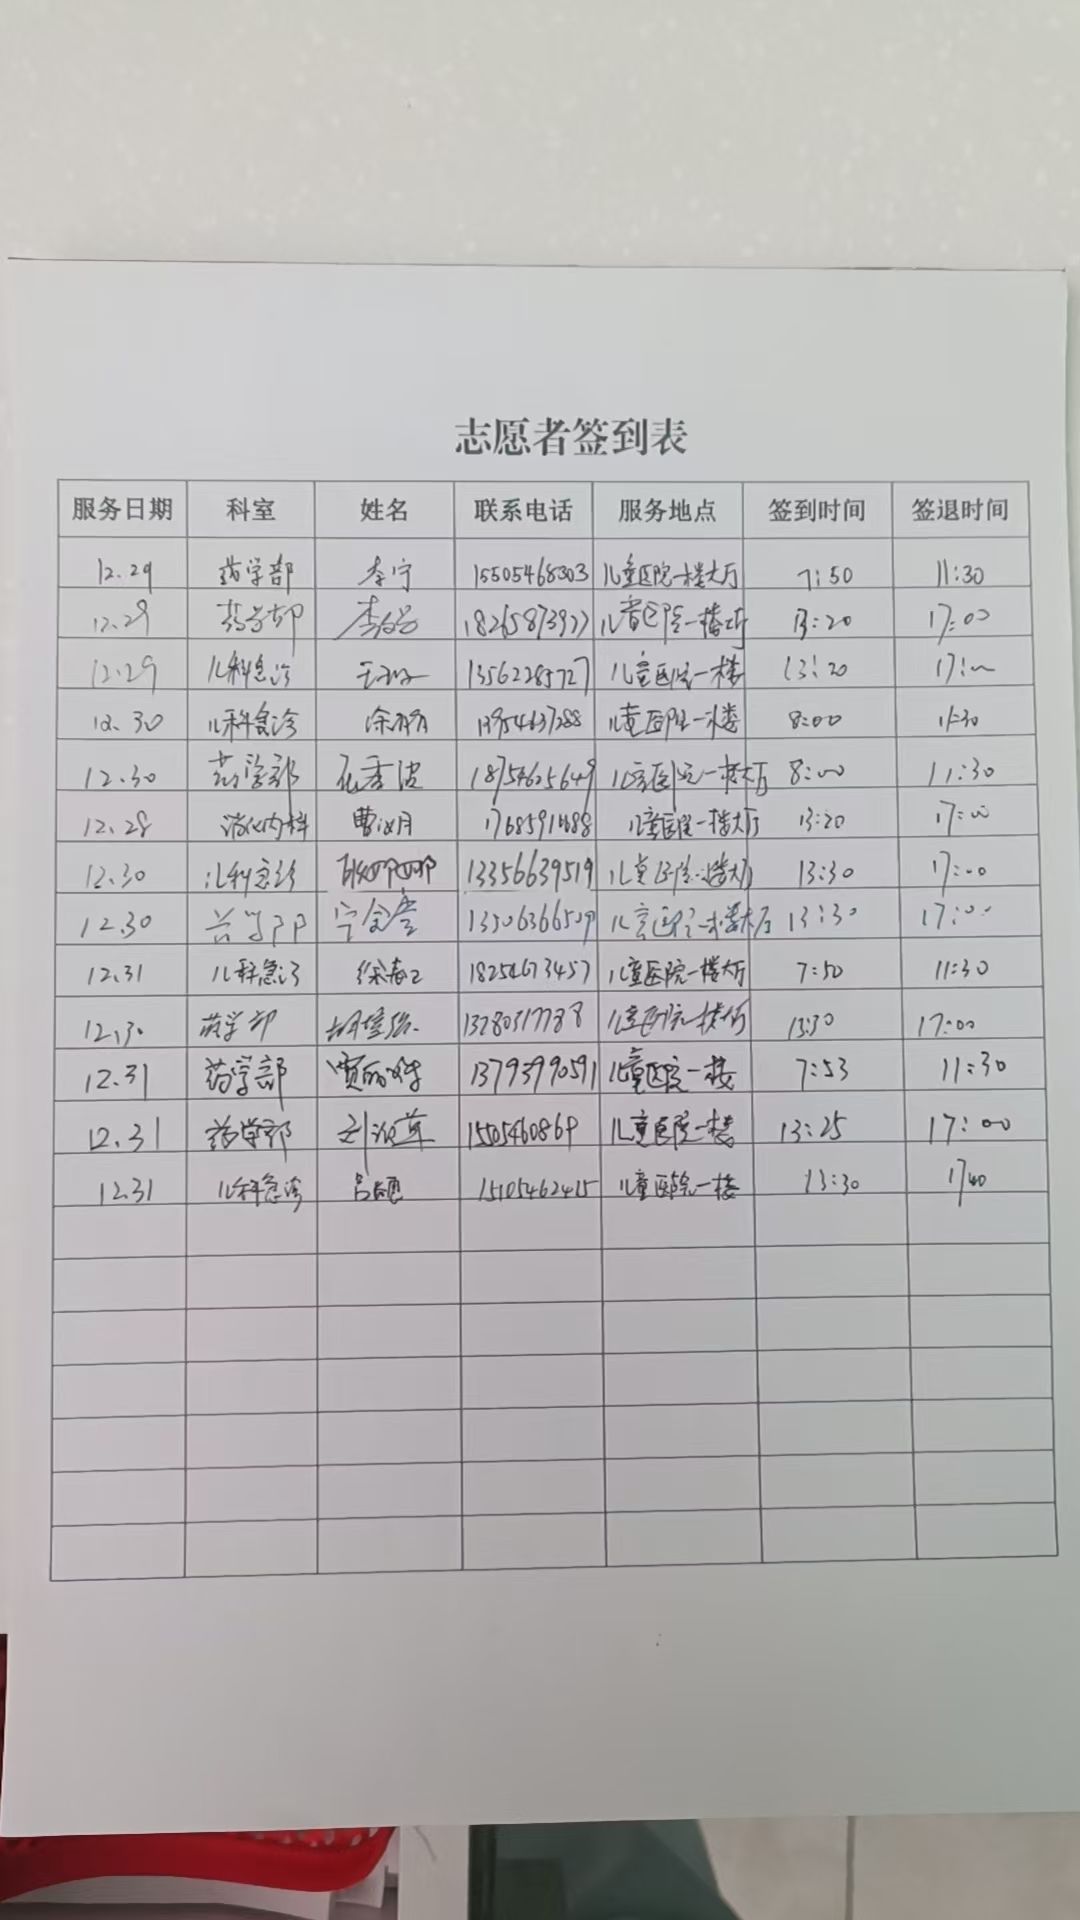 志愿者签到表
服务日期 科室 姓名 联系电话 服务地点 签到时间 签退时间
12.29 药学部 李宁 15505468303 儿童医院一楼大厅 7:50 11:30
12.29 药学部 18265873977 儿童医院一楼大厅 13:20 17:00
12.29 儿科急诊 13562285727 儿童医院一楼 13:20 17:00
12.30 儿科急诊 13954637288 儿童医院一楼 8:00 11:30
12.30 药学部 18754625649 儿童医院一楼大厅 8:00 11:30
12.28 消化内科 儿童医院一楼大厅 13:20 17:00
12.30 儿科急诊 13356639519 儿童医院一楼大厅 13:30 17:00
12.30 药学部 13506366509 儿童医院一楼大厅 13:30 17:00
12.31 儿科急诊 18254673457 儿童医院一楼大厅 7:50 11:30
12.30 药学部 13280317788 儿童医院一楼大厅 13:30 17:00
12.31 药学部 13793990591 儿童医院一楼 7:53 11:30
12.31 药学部 1505460869 儿童医院一楼 13:25 17:00
12.31 儿科急诊 15105462415 儿童医院一楼 13:30